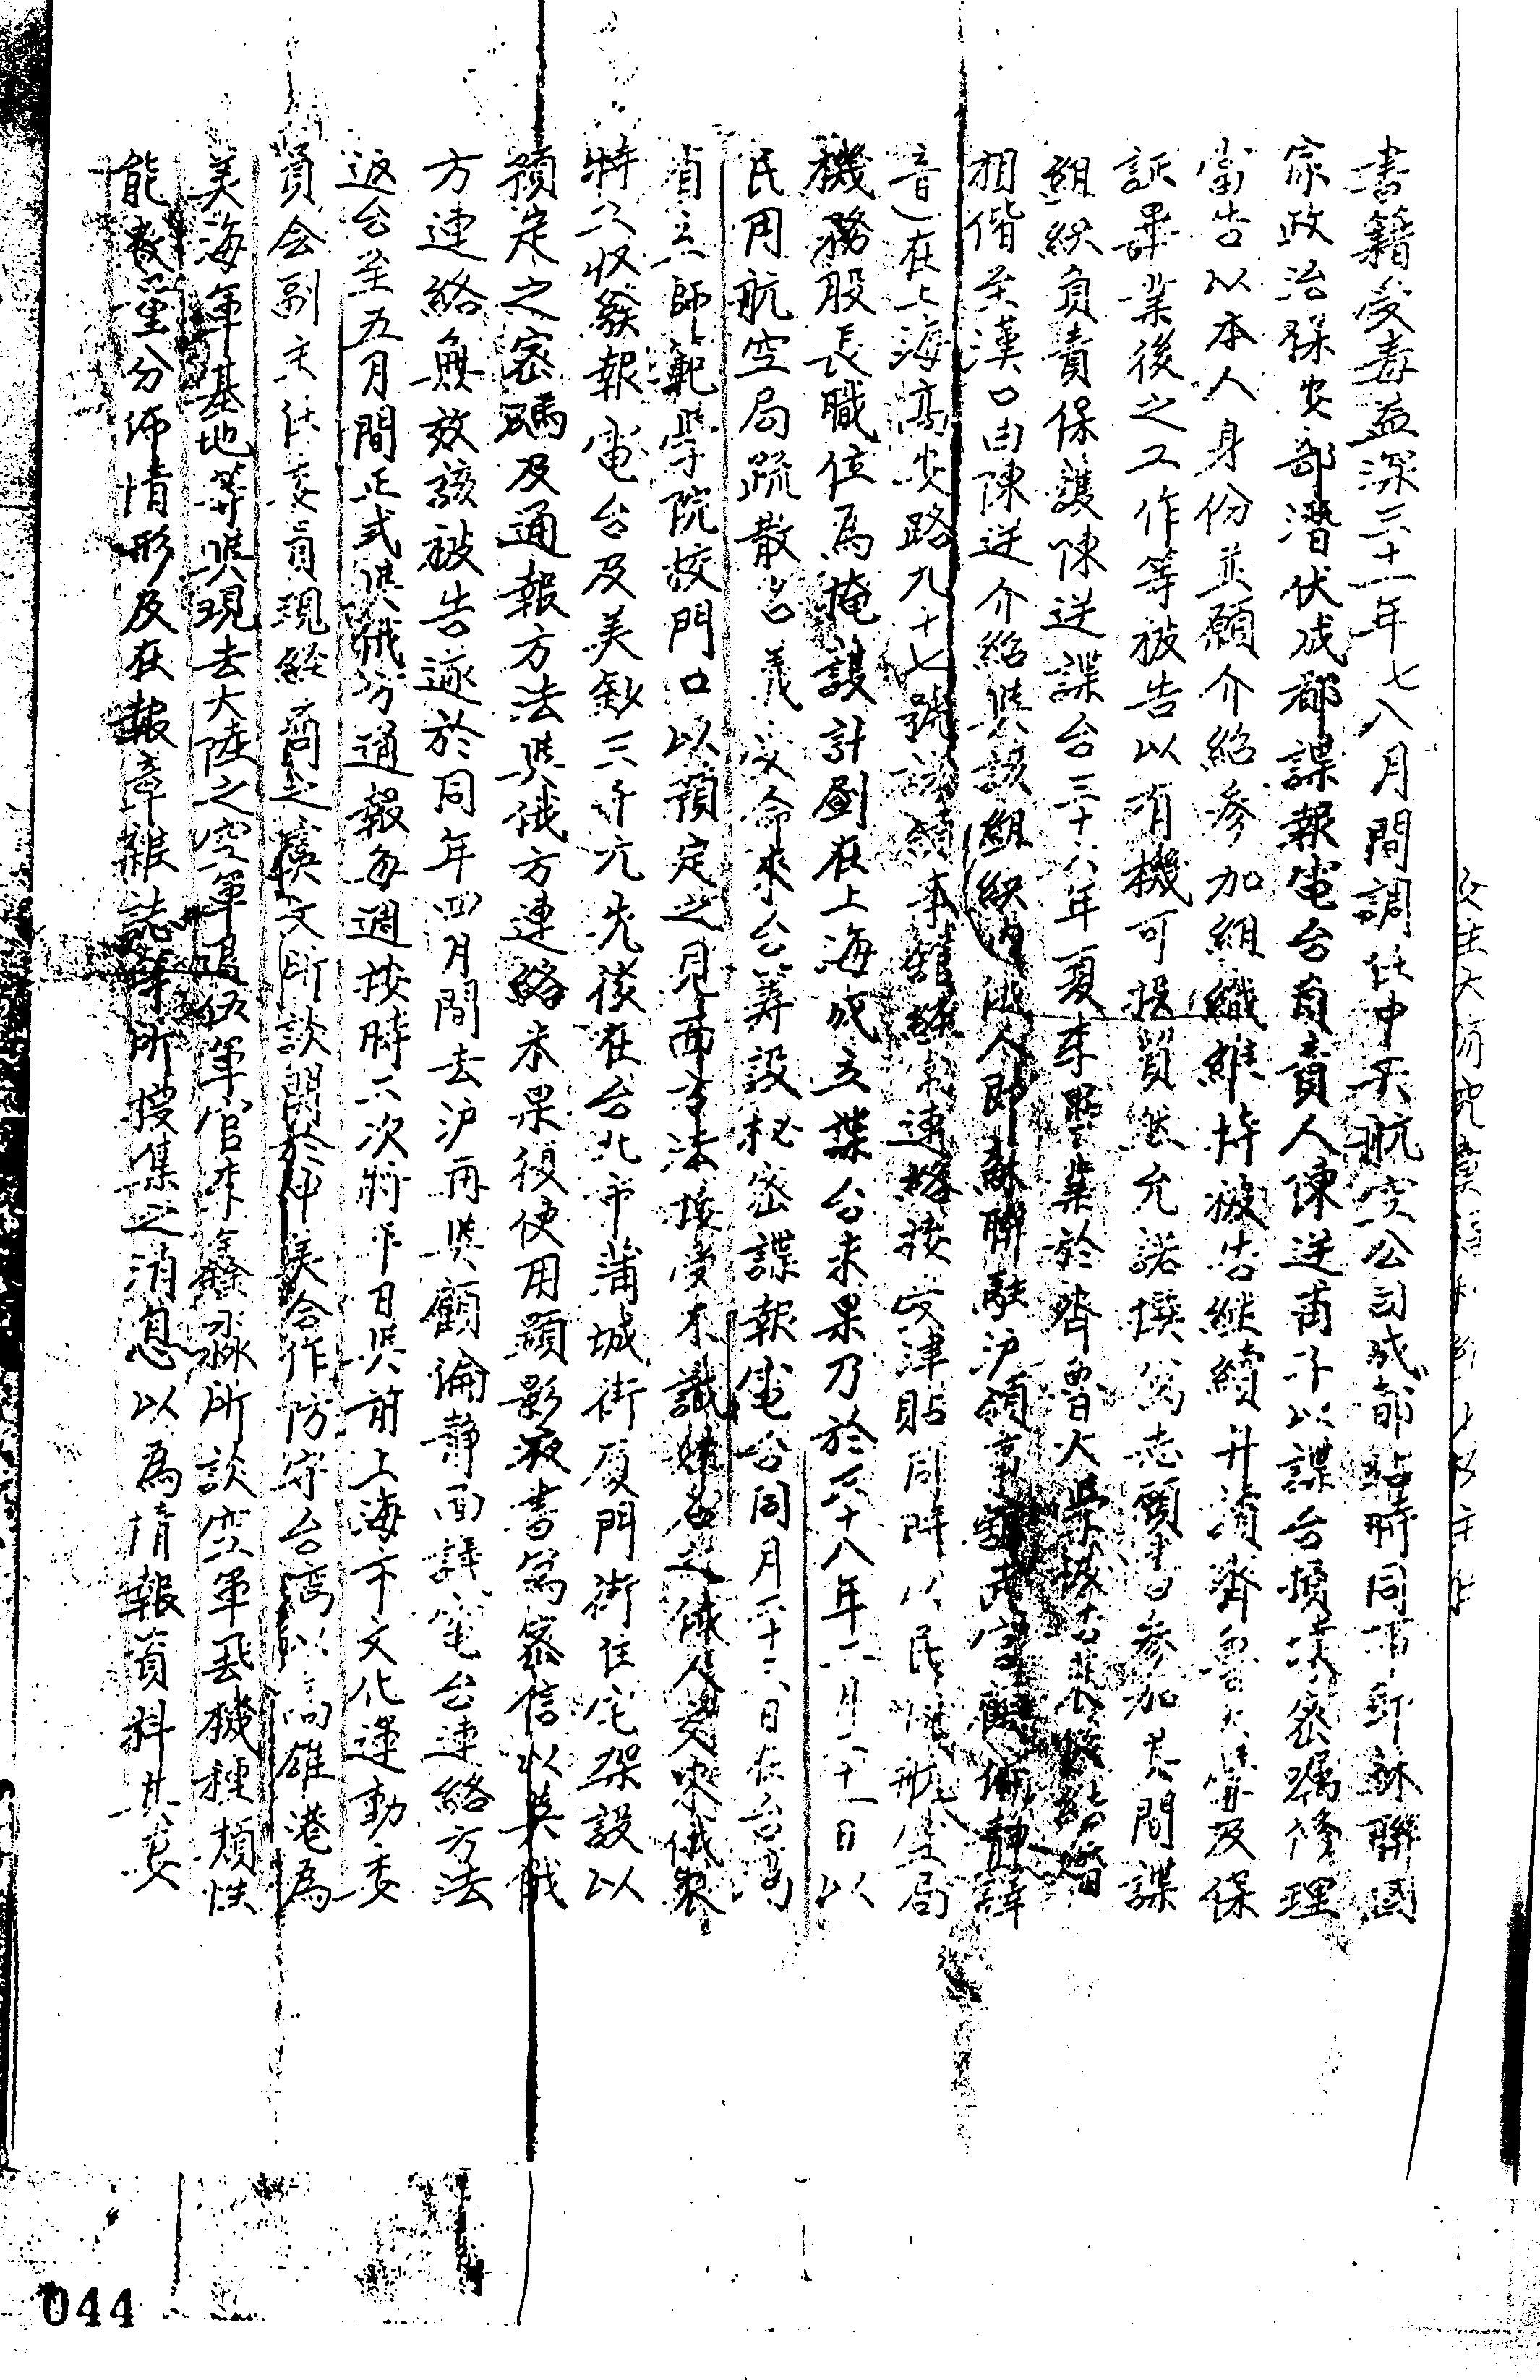 書籍受毒益深三十一年七八月間調任中央航空公司成都站時同情蘇聯國
家政治保安部潛伏成都諜報電台負責人陳逆甫子以諜台損壞密囑修理
當告以本人身份並願介紹參加組織維持被告繼續升讀齊魯大學及保
証畢業後之工作等被告以有機可投貿然允諾撰寫志願書參加其間諜
組織負責保護陳逆諜台三十六年夏季畢業於齊魯大學被告
相偕至漢口由陳逆介紹與該組織內俄人即蘇聯駐沪領事館武官顧倫靜譯
音)在上海高安路九十七號該領事館 連絡接受津貼同時以民航空局
機務股長職位為掩護計劃在上海成立諜台未果乃於三十八年二月二十一日以
民用航空局疏散名義受命來台籌設秘密諜報電台同月二十六日在台灣
省立師範學院校門口以預定之見面方法接受不識姓名之俄人交來俄製
特工收發報電台及美鈔三千元先後在台北市蒲城街厦門街住宅架設以
預定之密碼及通報方法與俄方連絡未果復使用顯影液書寫密信以與俄
方連絡無效該被告遂於同年四月間去沪再與顧倫靜面議電台連絡方法
返台至五月間正式與俄方通報每週按時二次將平日與前上海市文化運動委
員会副主任委員現經商之虞文所談關於中美合作防守台湾以高雄港為
美海軍基地等與現去大陸之空軍碼伍軍官李鑫淼所談空軍飛機種類性
能數量分佈情形及在報章雜誌等所搜集之消息以為情報資料共委
044